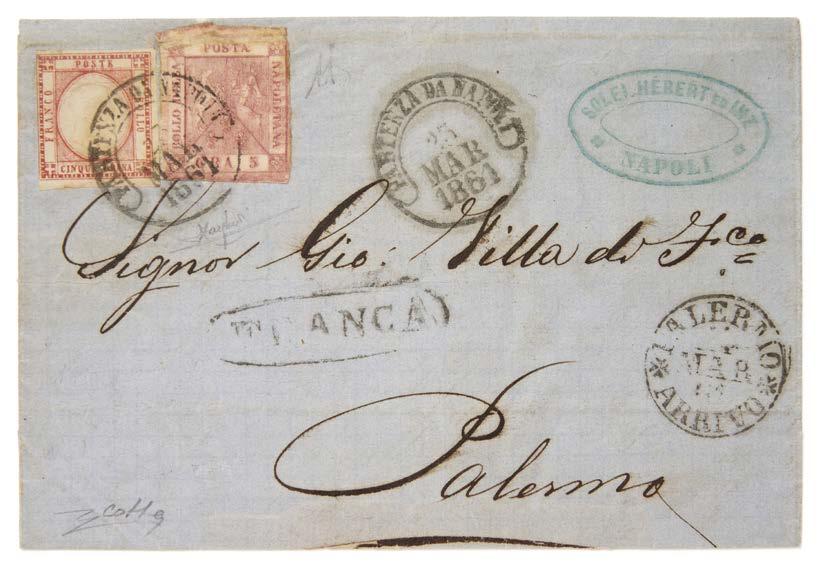 POSTE
FRANCO
CINQUE GRANA
POSTA
NAPOLETANA
BOLLO
GRA 5
PARTENZA DA NAPOLI
MAR
1861
PARTENZA DA NAPOLI
25
MAR
1861
SOLEI, HÉBERT ED
NAPOLI
Signor Gio: Villa di Fco
FRANCA
PALERMO
MAR
ARRIVO
Palermo